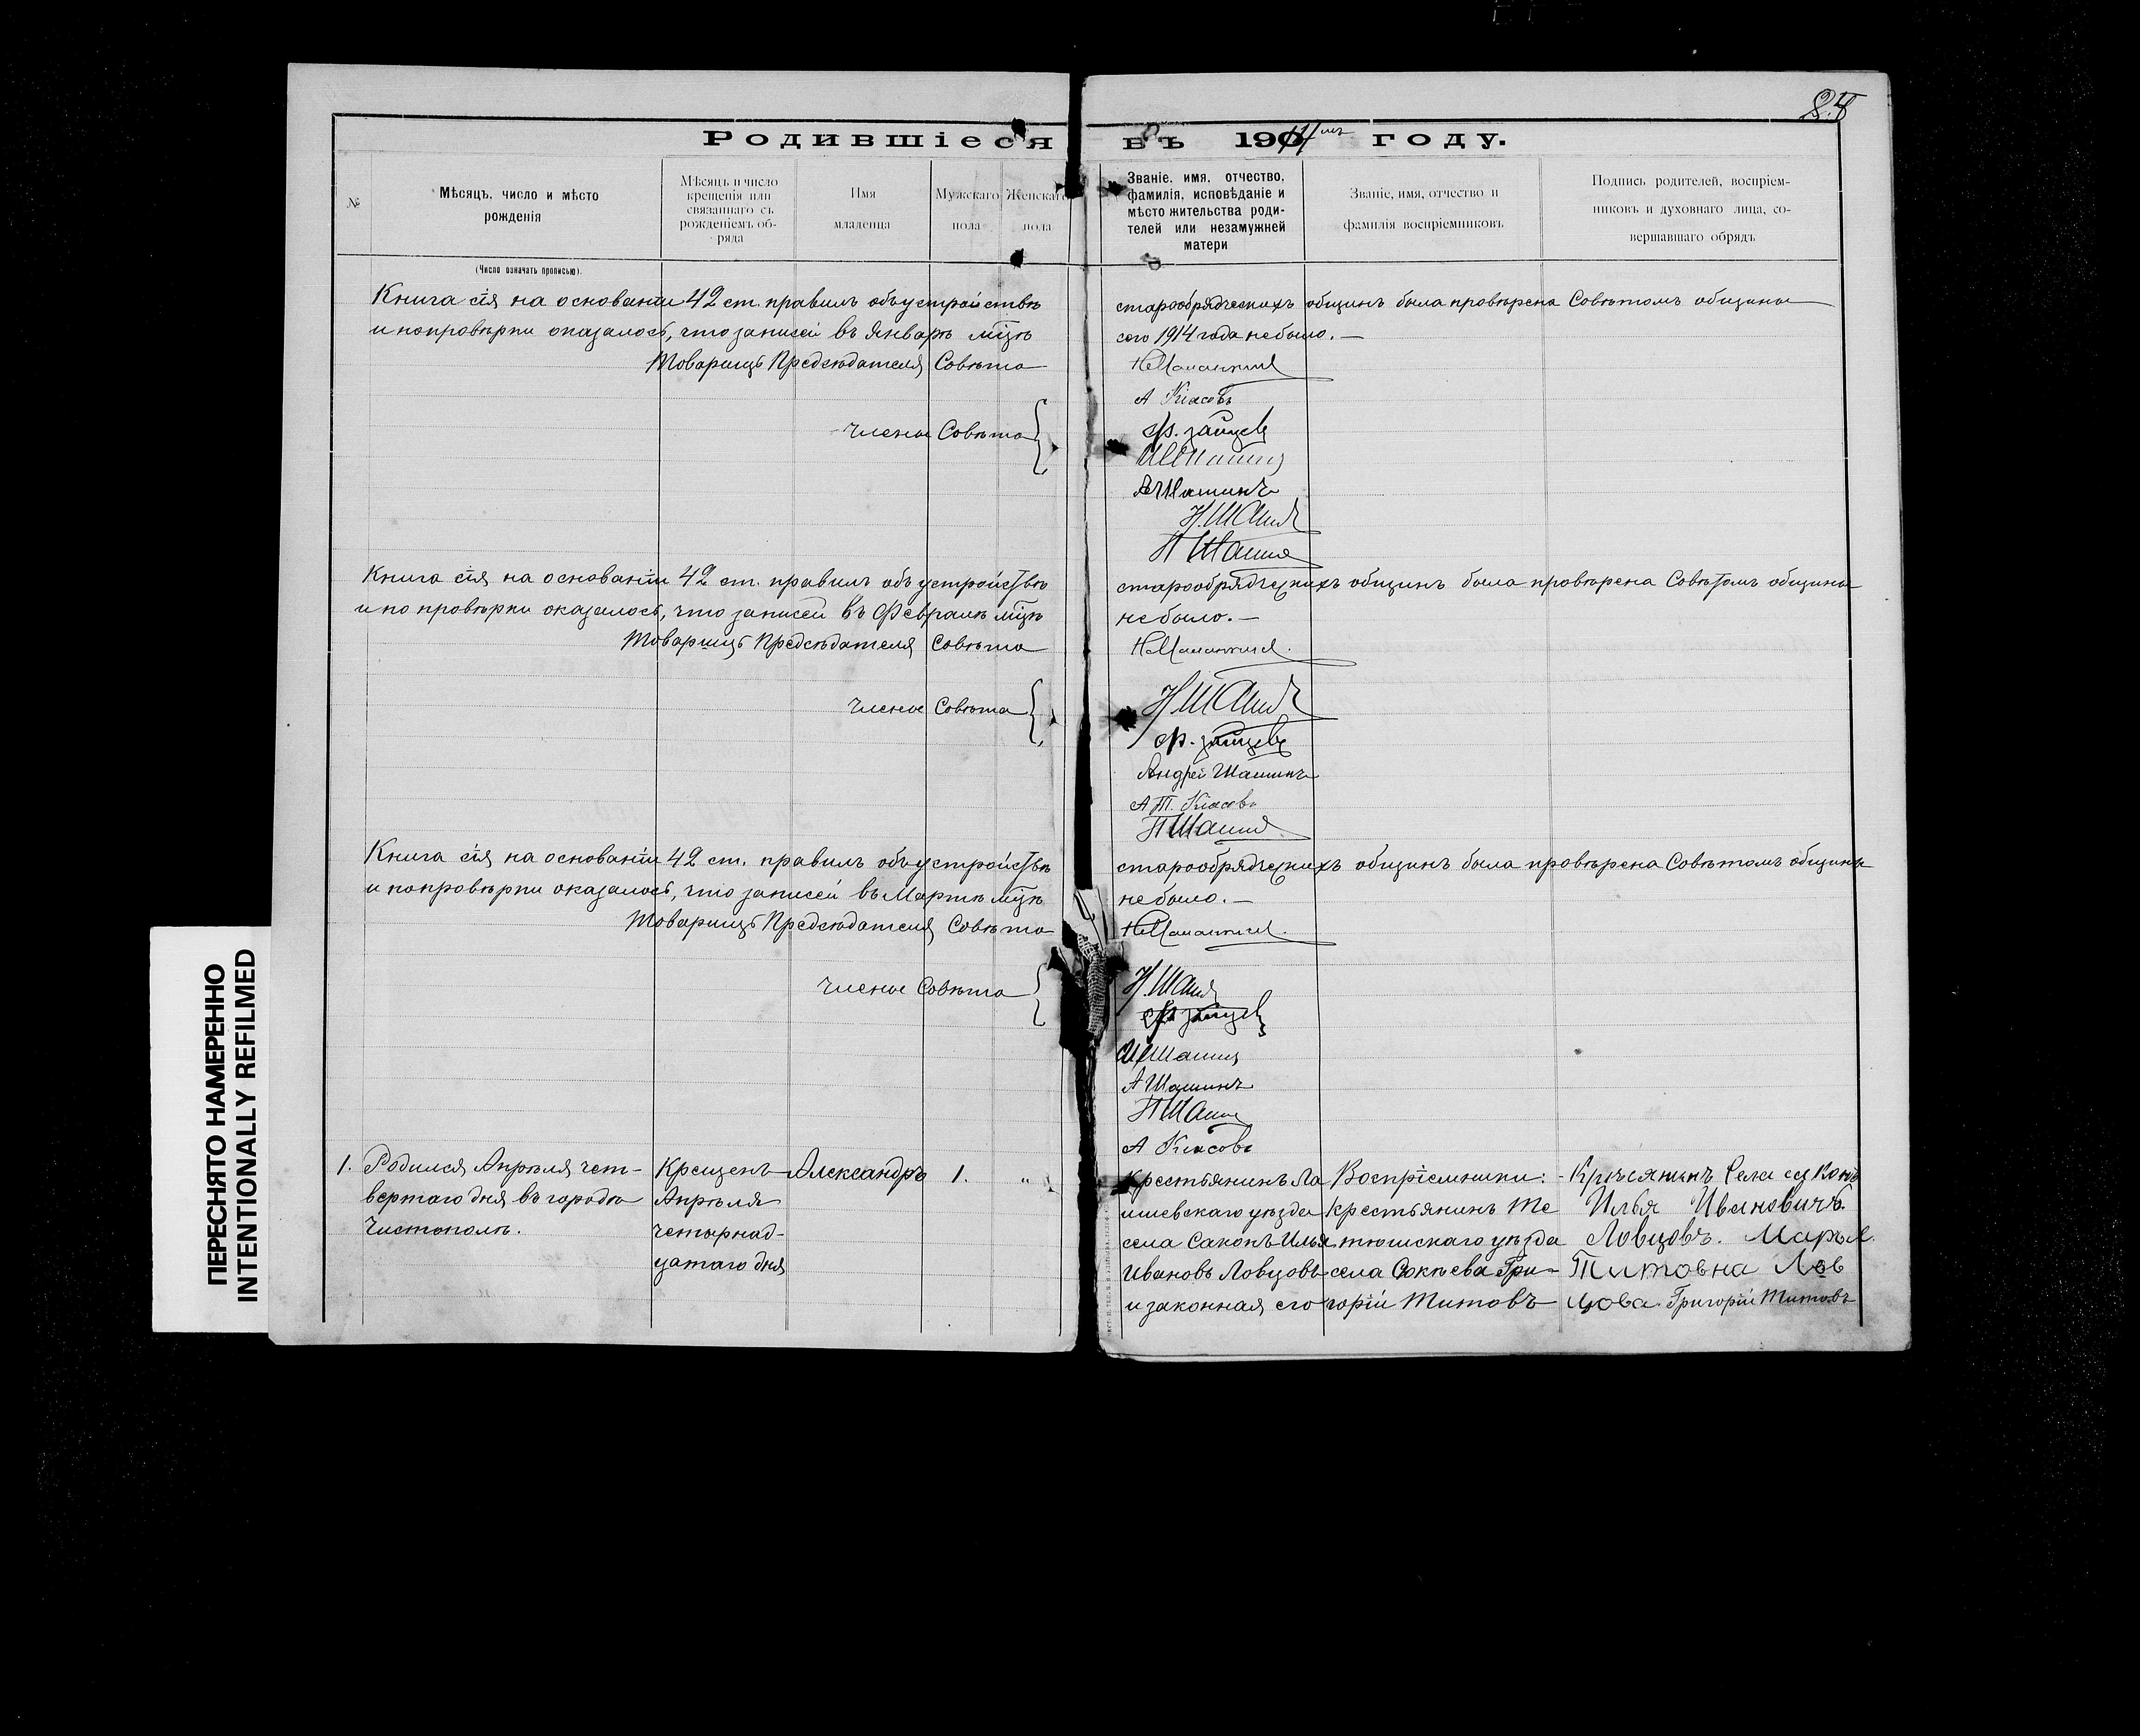 24
Родившіеся въ 1914мъ году.
№
Мѣсяцъ, число и мѣсто
рожденія
Мѣсяцъ и число
крещенія или
связаннаго съ
рожденіемъ об-
ряда
Имя
младенца
Мужскаго
пола
Женскаго
пола
Званіе, имя, отчество,
фамилія, исповѣданіе и
мѣсто жительства роди-
телей или незамужней
матери
Званіе, имя, отчество и
фамилія воспріемниковъ
Подпись родителей, воспріем-
никовъ и духовнаго лица, со-
вершавшаго обрядъ
(Число означать прописью).
Книга сія на основаніи 42 ст. правилъ объ устройствѣ старообрядческихъ общинъ была провѣрена Совѣтомъ общины
и по провѣрки оказалось, что записей въ Январѣ мцѣ сего 1914 года небыло. —
Товарищъ Предсѣдателя Совѣта
А Класовъ
Члены Совѣта
Ф. Зайцевъ
А Шашинъ
Н. Шашинъ
П Шашинъ
Книга сія на основаніи 42 ст. правилъ объ устройствѣ старообрядческихъ общинъ была провѣрена Совѣтомъ общины
и по провѣрки оказалось, что записей въ Февралѣ мцѣ небыло. —
Товарищъ Предсѣдателя Совѣта
Н Шашинъ
Члены Совѣта
Ф. Зайцевъ
Андрей Шашинъ
А Т. Класовъ
П Шашинъ
Книга сія на основаніи 42 ст. правилъ объ устройствѣ старообрядческихъ общинъ была провѣрена Совѣтомъ общины
и по провѣрки оказалось, что записей въ Мартѣ мцѣ небыло. —
Товарищъ Предсѣдателя Совѣта
Члены Совѣта
Н. Шашинъ
Ф Зайцевъ
И Шашинъ
А Шашинъ
П Шашинъ
А Класовъ
1.
Родился Апрѣля чет-
вертаго дня въ городѣ
Чистополѣ.
Крещенъ
Апрѣля
четырнад-
цатаго дня
Александръ
1.
"
Крестьянинъ Ла
ишевскаго уѣзда
села Саконъ Илья
Ивановъ Ловцовъ
и законная его
Воспріемники:
крестьянинъ Те
тюшскаго уѣзда
села Сюкѣева Гри-
горій Титовъ
Илья Ивановичъ
Ловцовъ. Марья
Титовна Лов
цова. Григорій Титовъ
ПЕРЕСНЯТО НАМЕРЕННО
INTENTIONALLY REFILMED